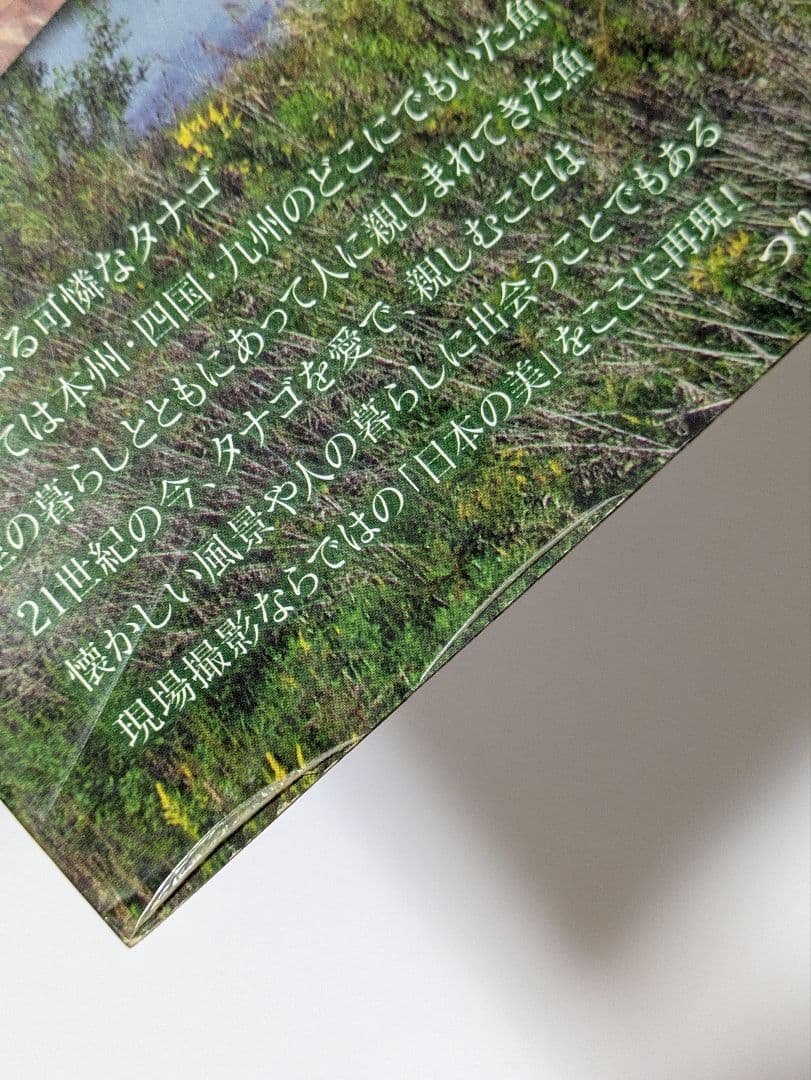 なる可憐なタナゴ
ては本州・四国・九州のどこにでもいた魚
の暮らしとともにあって人に親しまれてきた魚
21世紀の今、タナゴを愛で、親しむことは
懐かしい風景や人の暮らしに出会うことでもある
現場撮影ならではの「日本の美」をここに再現!
つり